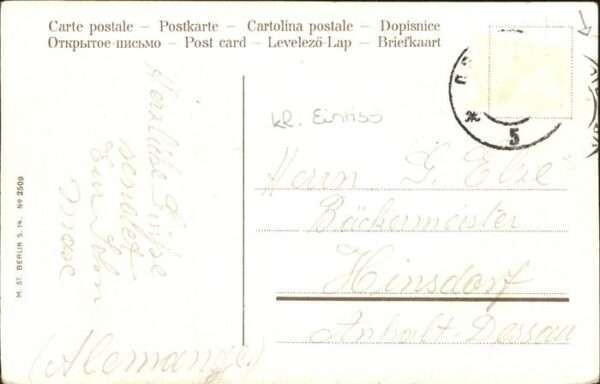 Carte postale – Postkarte – Cartolina postale – Dopisnice
Открытое письмо – Post card – Levelező-Lap – Briefkaart
M. ST. BERLIN S. 14. No 2509
Herzliche Grüße
sendet
Euer Sohn
Max
(Alemange)
kl. Einriss
5
Herrn G. Elze
Bäckermeister
Hinsdorf
Anhalt-Dessau